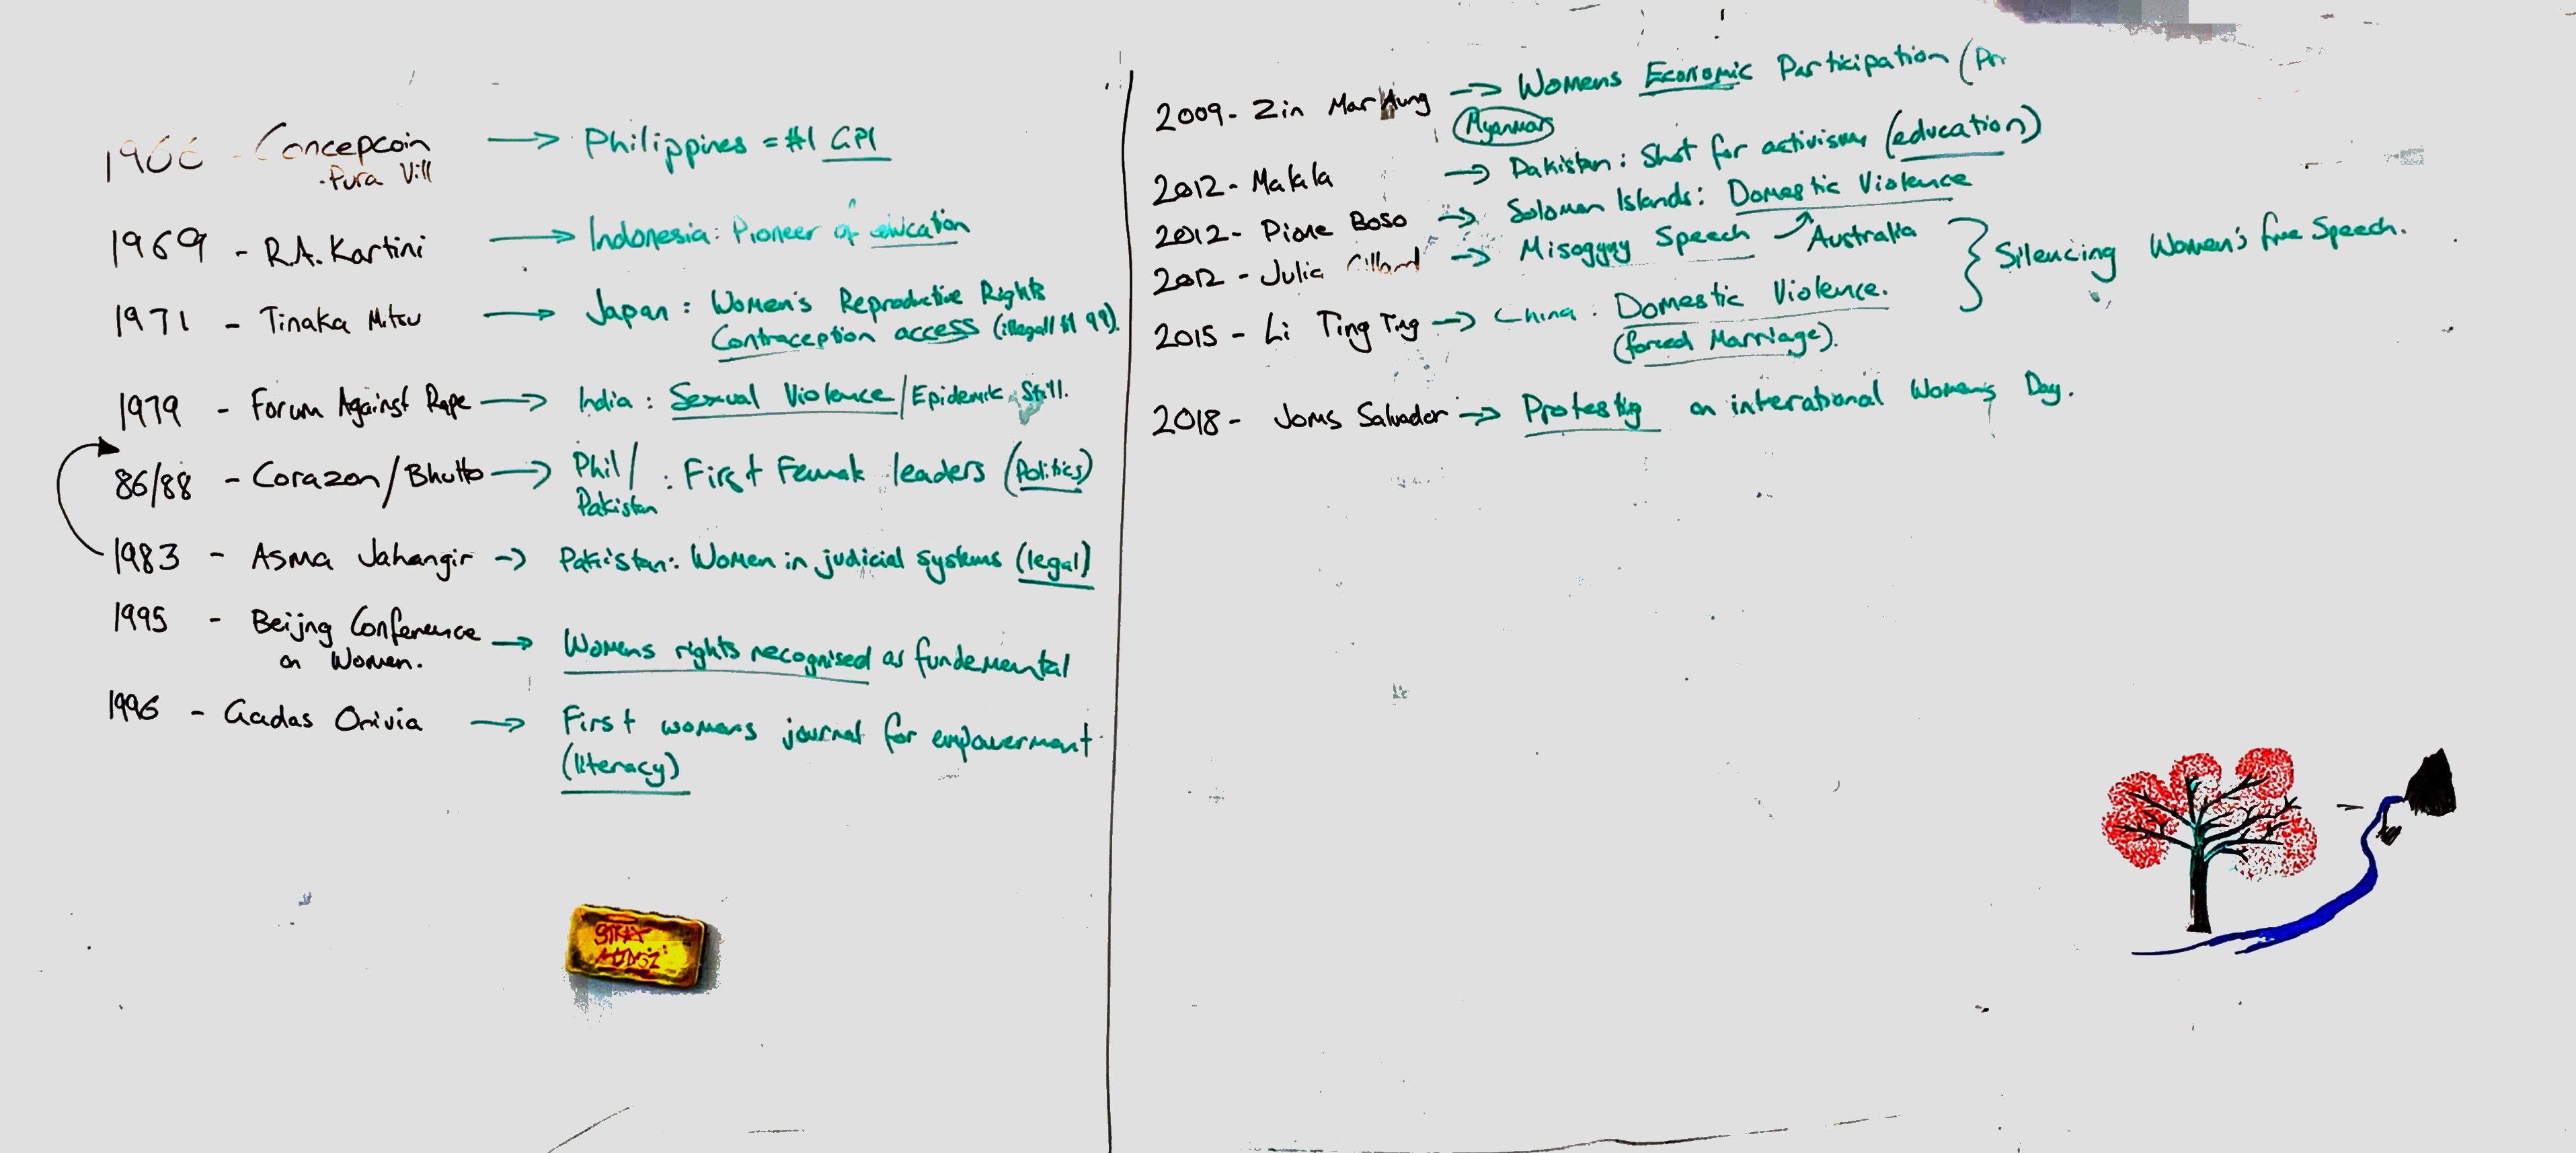 1966 - Concepcoin → Philippines = #1 GPI
·Pura Vill
1969 - R.A. Kartini → Indonesia: Pioneer of education
1971 - Tinaka Mitsu → Japan: Women's Reproductive Rights
Contraception access (illegal til 99).
1979 - Forum Against Rape → India: Sexual Violence / Epidemic Still.
86/88 - Corazon/Bhutto → Phil/ Pakistan : First Female leaders (Politics)
1983 - Asma Jahangir → Pakistan: Women in judicial systems (legal)
1995 - Beijng Conference
on Women. → Womens rights recognised as fundemental
1996 - Gadas Orivia → First womans journal for empowerment
(literacy)
2009 - Zin Mar Aung → Womens Economic Participation
Myanmar
2012 - Malala → Pakistan: Shot for activism (education)
2012 - Pione Boso → Soloman Islands: Domestic Violence
2012 - Julia Gillard → Misogyny Speech → Australia
Silencing Women's free Speech.
2015 - Li Ting Ting → China: Domestic Violence.
(forced Marriage).
2018 - Joms Salvador → Protesting on interational Women's Day.